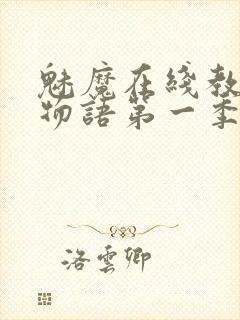 魅魔在綫教
物語第一季
洛雲卿